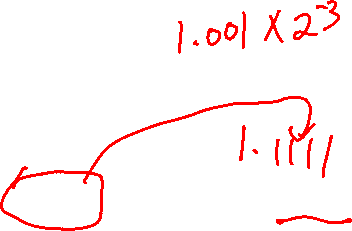 1.001 × 2⁻³
1.1111